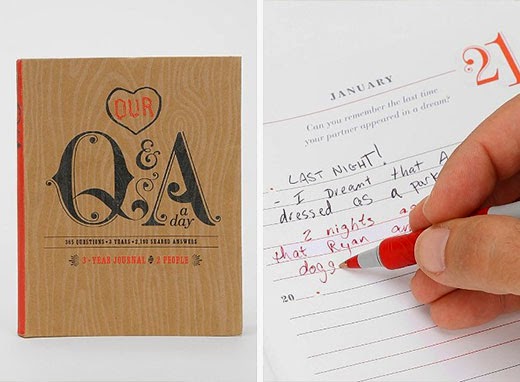 OUR
Q&A
a
day
365 QUESTIONS • 3 YEARS • 2,190 SHARED ANSWERS
3-YEAR JOURNAL 2 PEOPLE
JANUARY
21
Can you remember the last time
your partner appeared in a dream?
LAST NIGHT!
- I Dreamt that A
dressed as a park
2 nights ag
that Ryan an
dogg
20